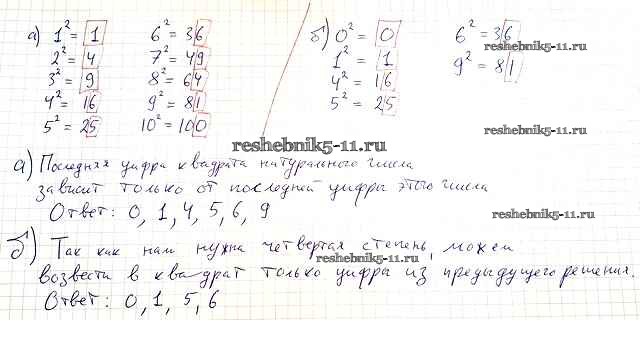 а) 1² = 1   6² = 36
2² = 4   7² = 49
3² = 9   8² = 64
4² = 16   9² = 81
5² = 25   10² = 100
б) 0² = 0   6² = 36
1² = 1   9² = 81
4² = 16
5² = 25
reshebnik5-11.ru
reshebnik5-11.ru
reshebnik5-11.ru
а) Последняя цифра квадрата натурального числа
зависит только от последней цифры этого числа
Ответ: 0, 1, 4, 5, 6, 9
reshebnik5-11.ru
б) Так как нам нужна четвертая степень, можем
reshebnik5-11.ru
возвести в квадрат только цифра из предыдущего решения.
Ответ: 0, 1, 5, 6
reshebnik5-11.ru